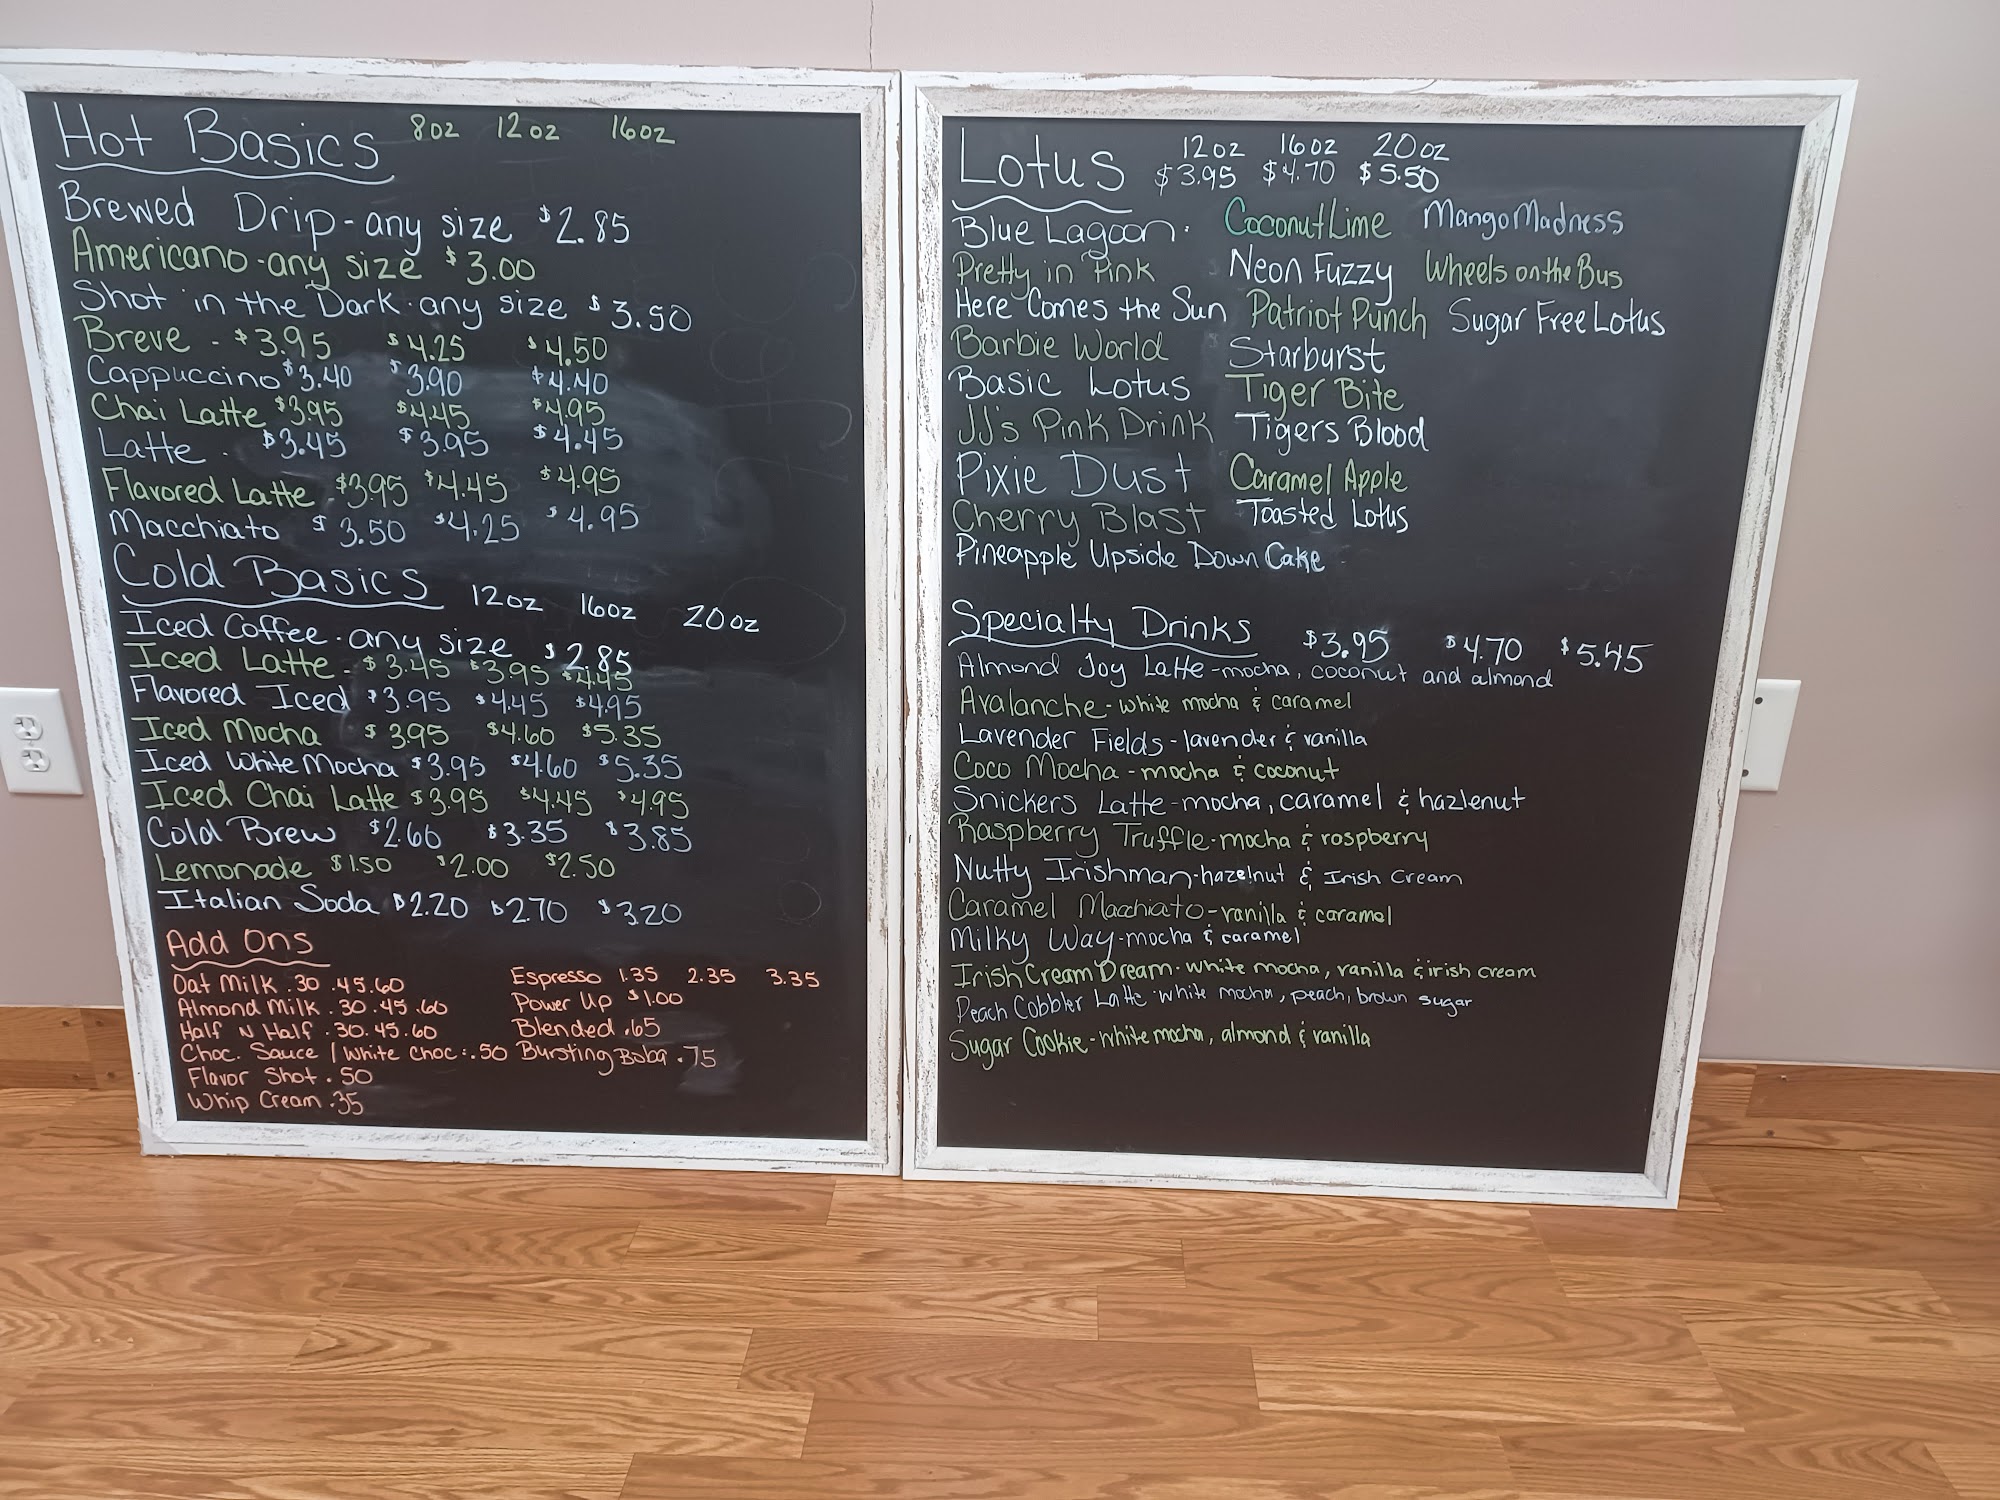 Hot Basics 8oz 12oz 16oz
Brewed Drip-any size $2.85
Americano-any size $3.00
Shot in the Dark-any size $3.50
Breve - $3.95 $4.25 $4.50
Cappuccino $3.40 $3.90 $4.40
Chai Latte $3.95 $4.45 $4.95
Latte - $3.45 $3.95 $4.45
Flavored Latte - $3.95 $4.45 $4.95
Macchiato $3.50 $4.25 $4.95
Cold Basics 12oz 16oz 20oz
Iced Coffee-any size $2.85
Iced Latte - $3.45 $3.95 $4.45
Flavored Iced $3.95 $4.45 $4.95
Iced Mocha $3.95 $4.60 $5.35
Iced White Mocha $3.95 $4.60 $5.35
Iced Chai Latte $3.95 $4.45 $4.95
Cold Brew $2.60 $3.35 $3.85
Lemonade $1.50 $2.00 $2.50
Italian Soda $2.20 $2.70 $3.20
Add Ons
Oat Milk .30 .45 .60
Almond Milk .30 .45 .60
Half N Half .30 .45 .60
Choc. Sauce / White Choc: .50
Flavor Shot .50
Whip Cream .35
Espresso 1.35 2.35 3.35
Power Up $1.00
Blended .65
Bursting Boba .75
Lotus 12oz 16oz 20oz
$3.95 $4.70 $5.50
Blue Lagoon. Coconut Lime Mango Madness
Pretty in Pink Neon Fuzzy Wheels on the Bus
Here Comes the Sun Patriot Punch Sugar Free Lotus
Barbie World Starburst
Basic Lotus Tiger Bite
JJ's Pink Drink Tigers Blood
Pixie Dust Caramel Apple
Cherry Blast Toasted Lotus
Pineapple Upside Down Cake
Specialty Drinks $3.95 $4.70 $5.45
Almond Joy Latte-mocha, coconut and almond
Avalanche-white mocha & caramel
Lavender Fields-lavender & vanilla
Coco Mocha-mocha & coconut
Snickers Latte-mocha, caramel & hazlenut
Raspberry Truffle-mocha & raspberry
Nutty Irishman-hazelnut & Irish Cream
Caramel Macchiato-vanilla & caramel
Milky Way-mocha & caramel
Irish Cream Dream-white mocha, vanilla & irish cream
Peach Cobbler Latte-white mocha, peach, brown sugar
Sugar Cookie-white mocha, almond & vanilla